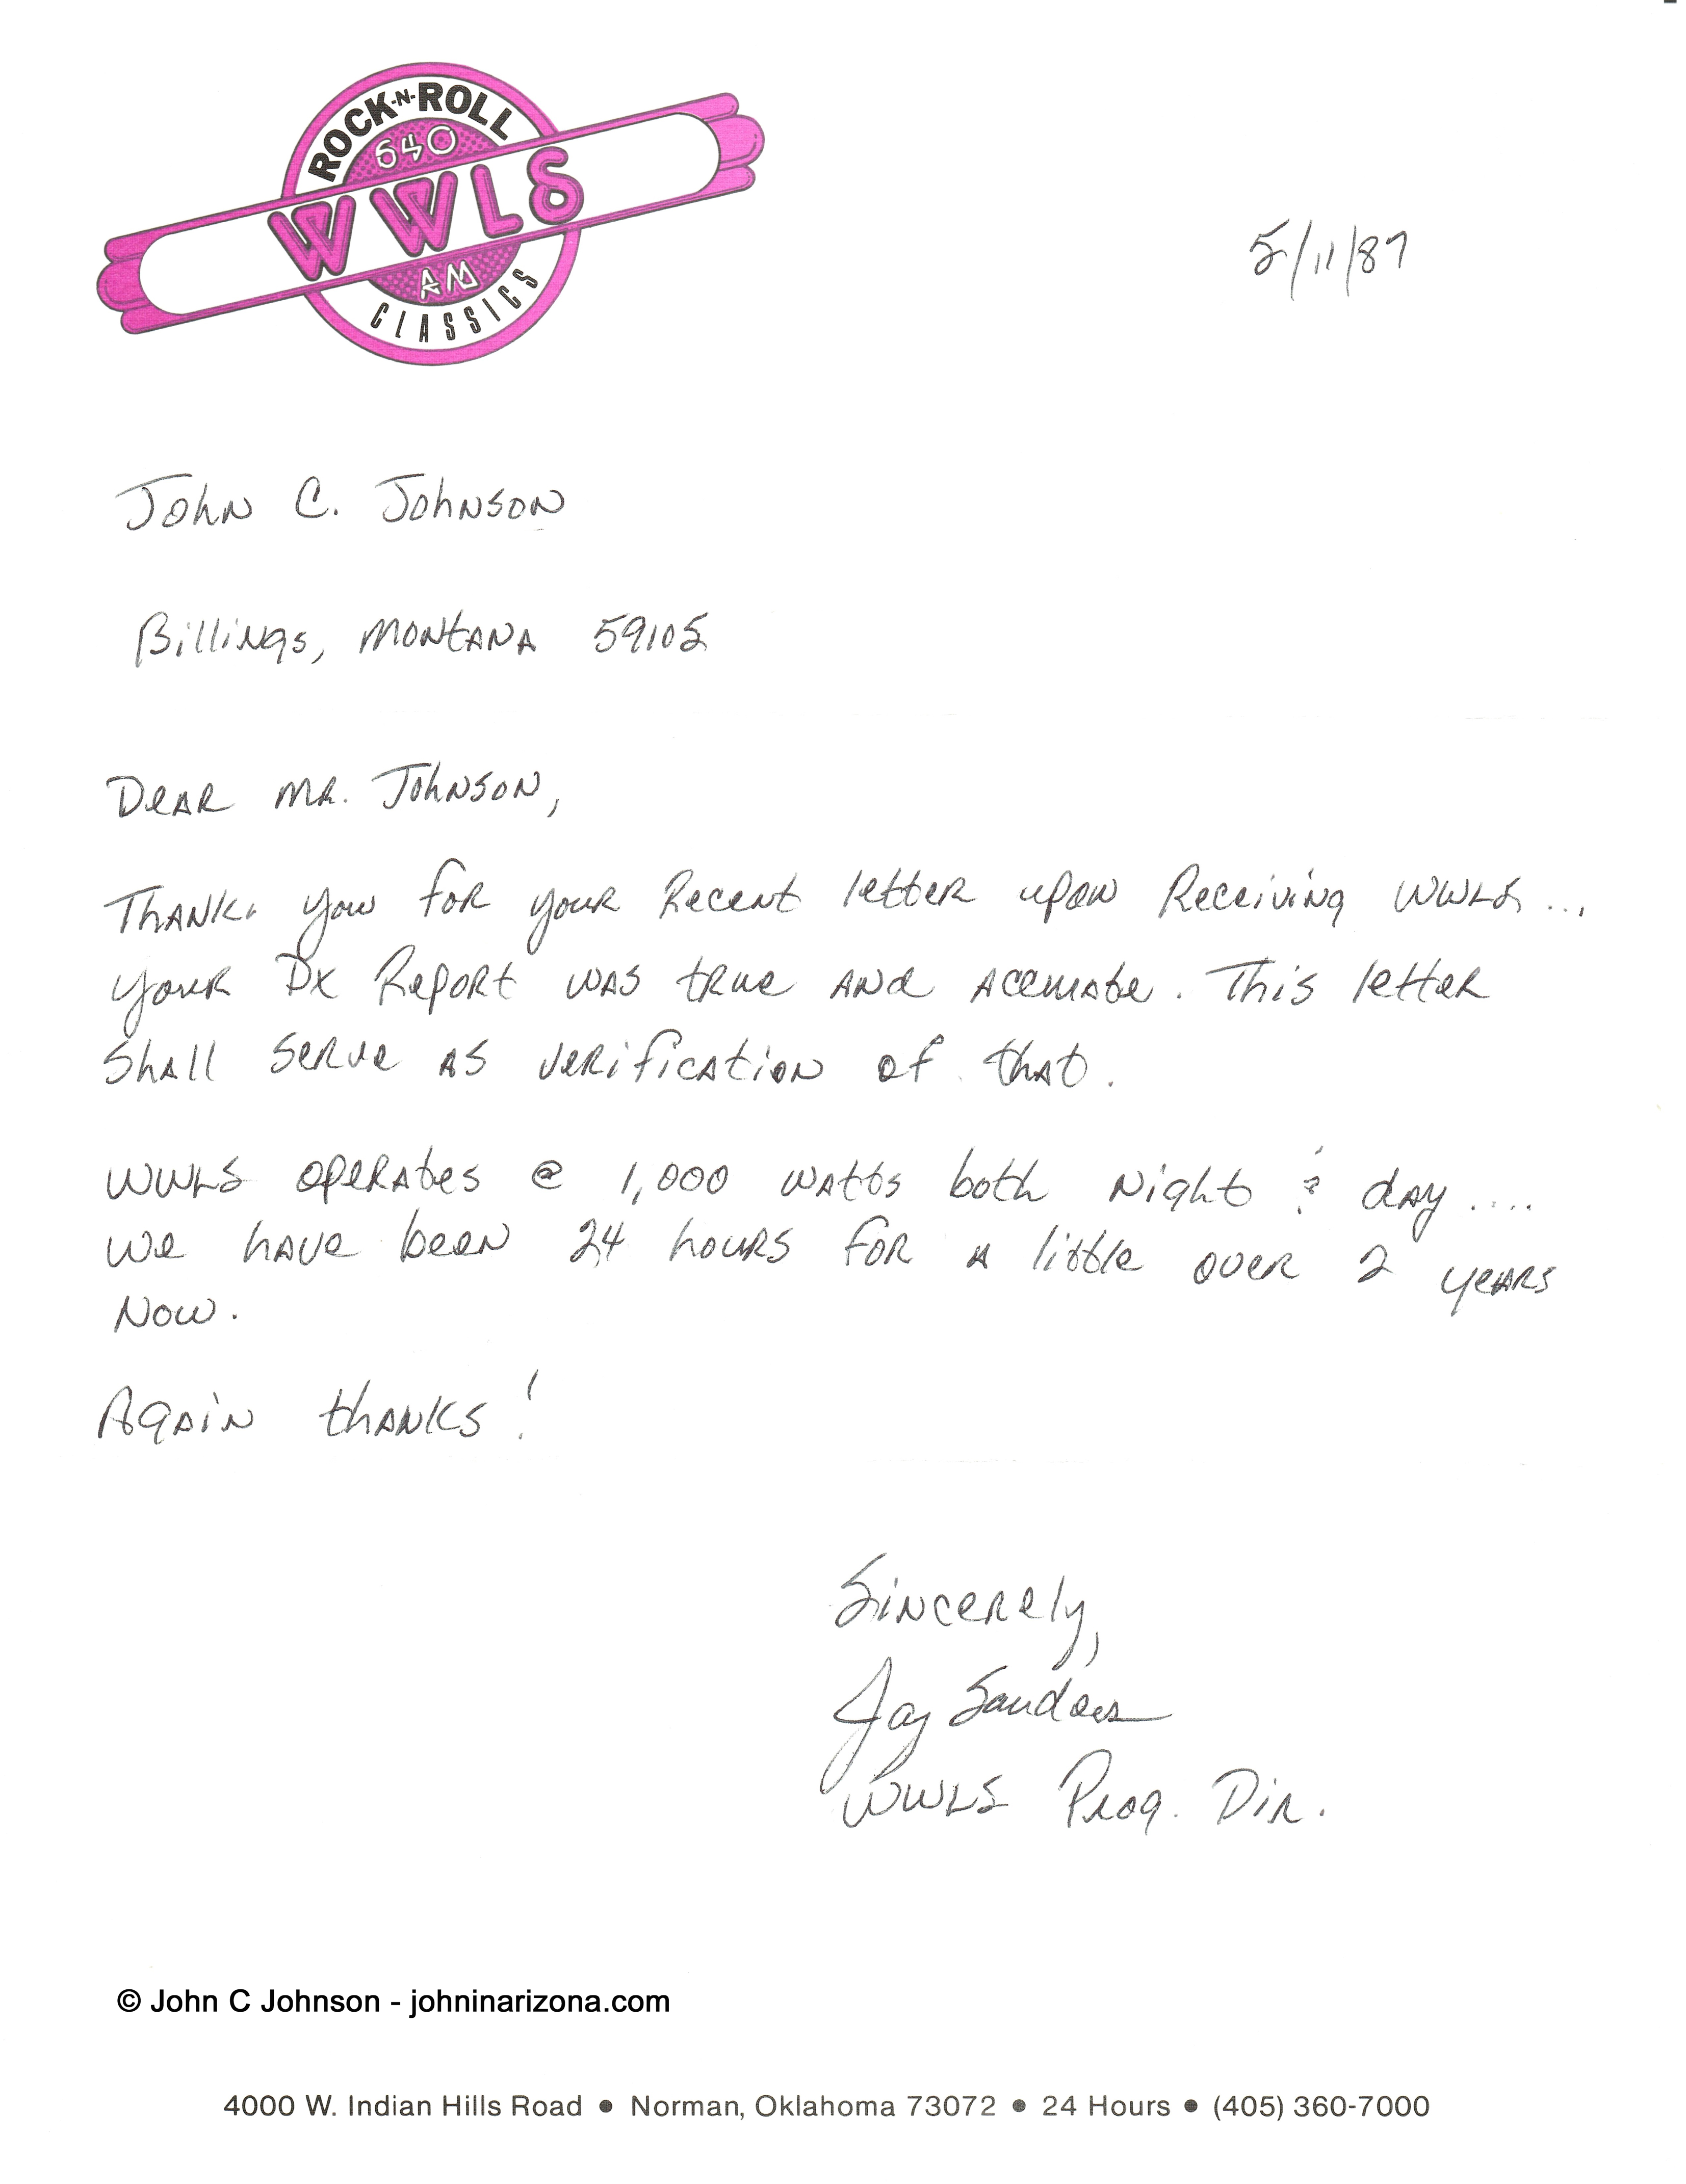 ROCK-N-ROLL
640
WWLS
AM
CLASSICS
5/11/87
John C. Johnson
Billings, Montana 59105
Dear Mr. Johnson,
Thank you for your recent letter upon receiving WWLS...
your DX Report was true and accurate. This letter
shall serve as verification of that.
WWLS operates @ 1,000 watts both night & day....
We have been 24 hours for a little over 2 years
now.
Again thanks!
Sincerely,
Jay Sanders
WWLS Prog. Dir.
© John C Johnson - johninarizona.com
4000 W. Indian Hills Road ● Norman, Oklahoma 73072 ● 24 Hours ● (405) 360-7000